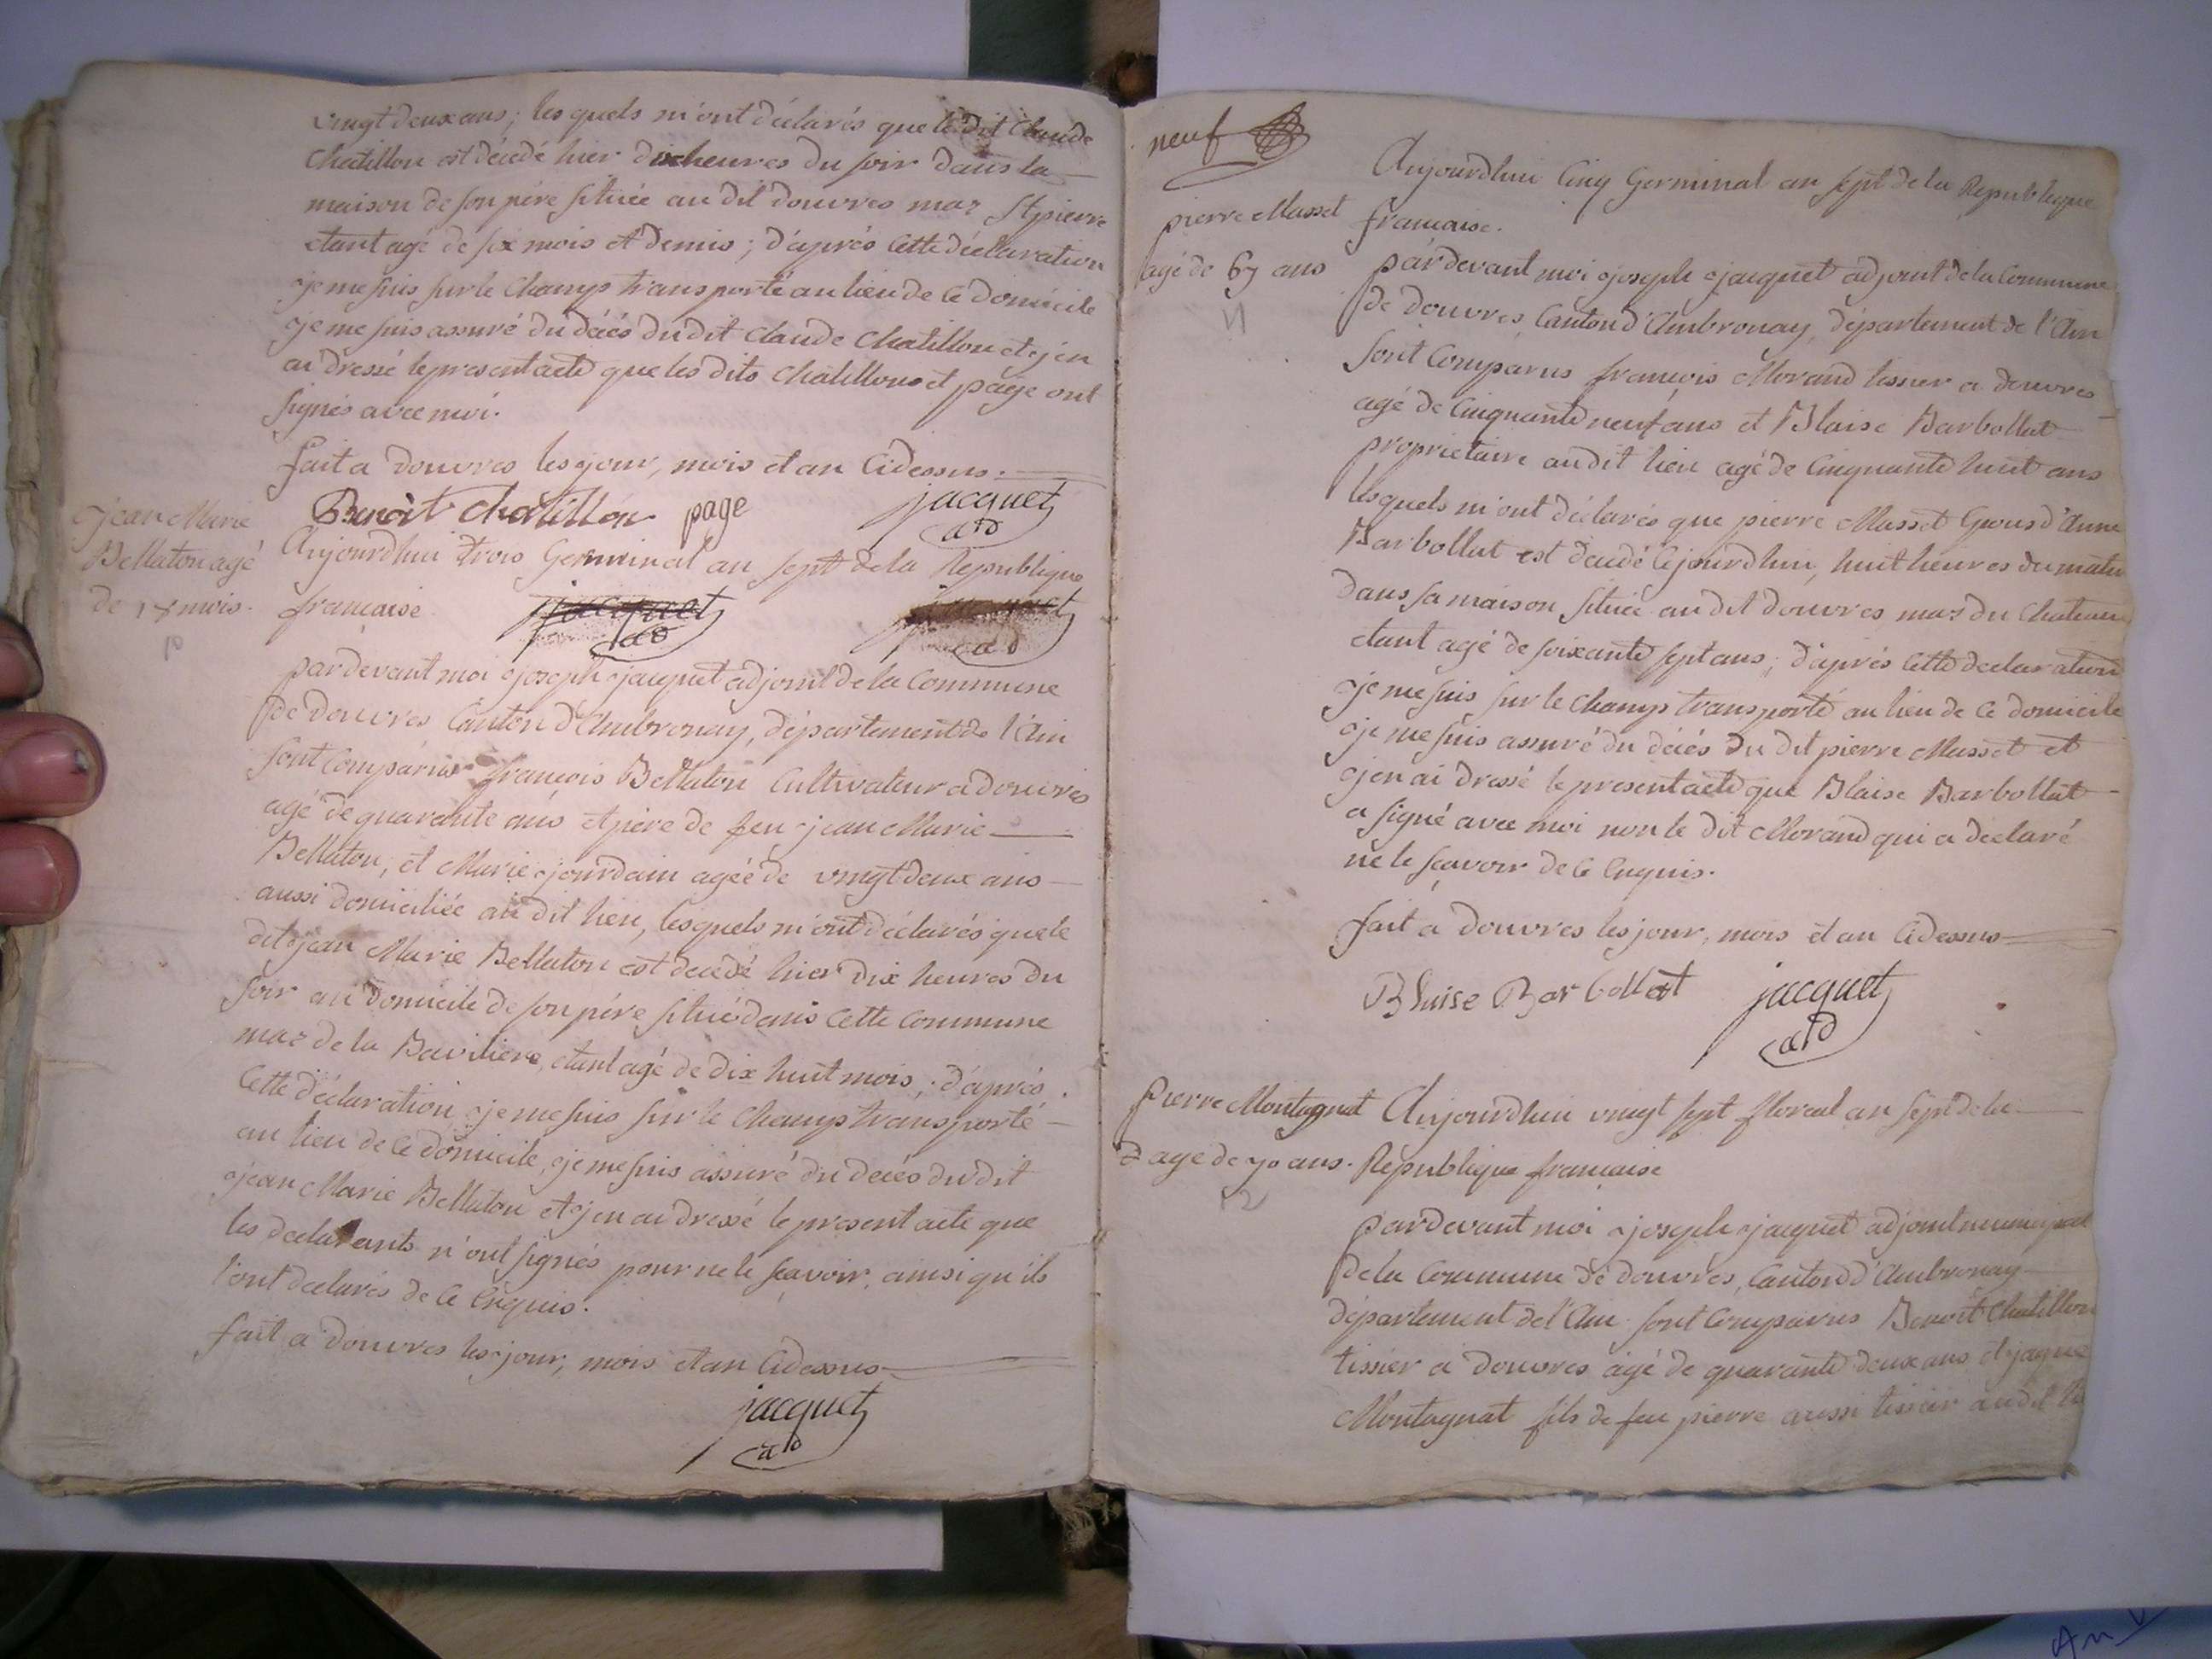 vingt deux ans; les quels m'ont déclarés que le dit Claude
Chatillon est décédé hier dix heures du soir dans la
maison de son pére située au dit douvres mas St pierre
etant agé de six mois et demis; d'aprés cette déclaration
je me suis sur le champ transporté au lieu de ce domicile
je me suis assuré du décés du dit Claude Chatillon et j'en
ai dressé le present acte que les dits Chatillons et page ont
signés avec moi.
fait a douvres les jour, mois et an cidessus.
Benoit chatillon page jacquet
ad
jean Marie
Bellaton agé
de 18 mois.
10
Aujourdhui trois Germinal an sept de la Republique
francaise jacquet
ad
ad
par devant moi joseph jacquet adjoint de la Commune
de douvres Canton d'Ambronay, département de l'Ain
sont Comparus françois Bellaton Cultivateur a douvres
agé de quarante ans et pere de feu jean Marie
Bellaton, et Marie jourdain agéé de vingt deux ans
aussi domiciliée au dit lieu, lesquels m'ont déclarés que le
dit jean Marie Bellaton est decedé hier dix heures du
soir au domicile de son pére situé dans cette commune
mas de la Baviliere, etant agé de dix huit mois; d'aprés
Cette déclaration, je me suis sur le champ transporté
au lieu de ce domicile, je me suis assuré du decés du dit
jean Marie Bellaton et j'en ai dressé le present acte que
les declarants n'ont signés pour ne le sçavoir, ainsi qu'ils
l'ont declarés de ce Enquis.
fait a douvres les jour, mois et an cidessus
jacquet
ad
neuf
pierre Masset
agé de 67 ans
11
Aujourdhui Cinq Germinal an sept de la Republique
francaise.
pardevant moi joseph jacquet adjoint de la Commune
de douvres, Canton d'Ambronay, département de l'Ain
sont Comparus françois Morand tissier a douvres
agé de Cinquante neuf ans et Blaise Barbollat
proprietaire au dit lieu agé de Cinquante huit ans
lesquels m'ont déclarés que pierre Masset Epous d'Anne
Barbollat est decedé Cejourdhui, huit heures du matin
dans sa maison située au dit douvres mas du Chateau
etant agé de soixante sept ans; d'aprés cette declaration
je me suis sur le champ transporté au lieu de ce domicile
je me suis assuré du décés du dit pierre Masset et
j'en ai dressé le present acte que Blaise Barbollat
a signé avec moi non le dit Morand qui a declaré
ne le sçavoir de ce Enquis.
fait a douvres les jour, mois et an cidessus
Blaise Barbollat jacquet
ad
Pierre Montagnat
age de 70 ans.
12
Aujourdhui vingt sept floreal an sept de la
Republique francaise
pardevant moi joseph jacquet adjoint municipal
de la Commune de douvres, Canton d'Ambronay
département de l'Ain sont Comparus Benoit Chatillon
tissier a douvres agé de quarante deux ans et jaque
Montagnat fils de feu pierre aussi tissier au dit
An